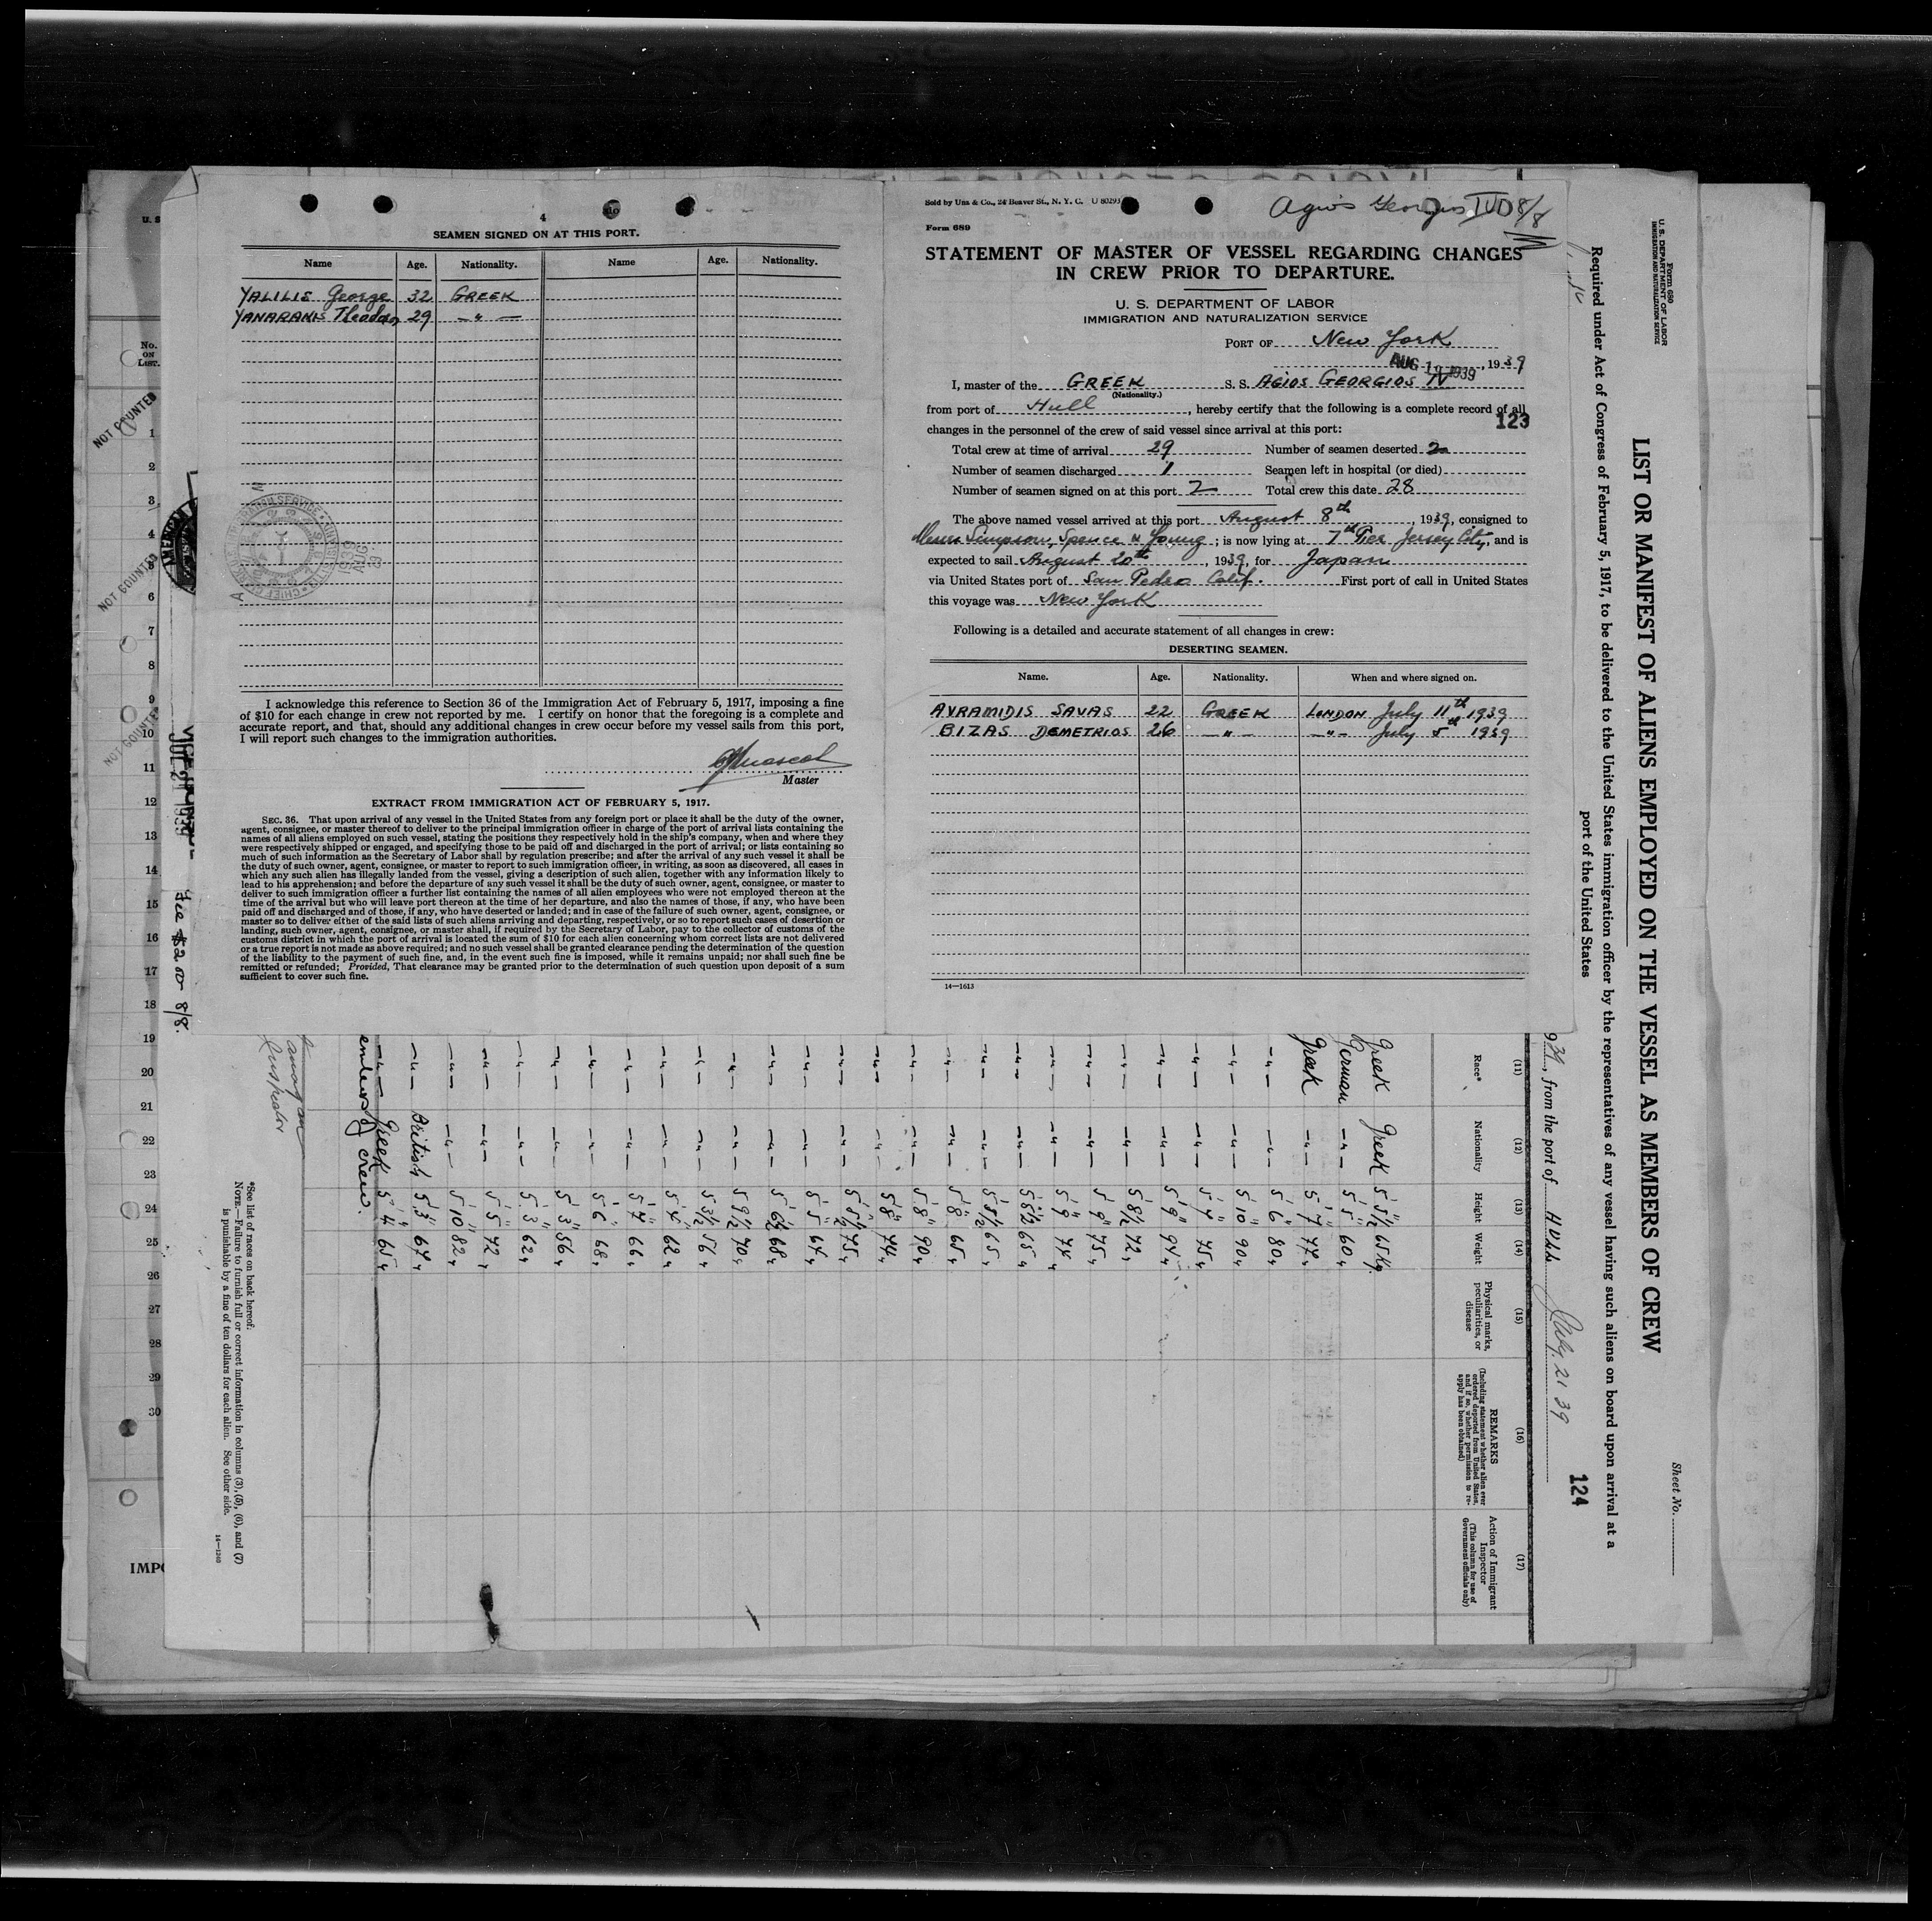 4
SEAMEN SIGNED ON AT THIS PORT.
Name Age. Nationality. Name Age. Nationality.
YALILIS George 32 GREEK
YANARAKIS Theodor 29 — " —
I acknowledge this reference to Section 36 of the Immigration Act of February 5, 1917, imposing a fine
of $10 for each change in crew not reported by me. I certify on honor that the foregoing is a complete and
accurate report, and that, should any additional changes in crew occur before my vessel sails from this port,
I will report such changes to the immigration authorities.
Master
EXTRACT FROM IMMIGRATION ACT OF FEBRUARY 5, 1917.
SEC. 36. That upon arrival of any vessel in the United States from any foreign port or place it shall be the duty of the owner,
agent, consignee, or master thereof to deliver to the principal immigration officer in charge of the port of arrival lists containing the
names of all aliens employed on such vessel, stating the positions they respectively hold in the ship's company, when and where they
were respectively shipped or engaged, and specifying those to be paid off and discharged in the port of arrival; or lists containing so
much of such information as the Secretary of Labor shall by regulation prescribe; and after the arrival of any such vessel it shall be
the duty of such owner, agent, consignee, or master to report to such immigration officer, in writing, as soon as discovered, all cases in
which any such alien has illegally landed from the vessel, giving a description of such alien, together with any information likely to
lead to his apprehension; and before the departure of any such vessel it shall be the duty of such owner, agent, consignee, or master to
deliver to such immigration officer a further list containing the names of all alien employees who were not employed thereon at the
time of the arrival but who will leave port thereon at the time of her departure, and also the names of those, if any, who have been
paid off and discharged and of those, if any, who have deserted or landed; and in case of the failure of such owner, agent, consignee, or
master so to deliver either of the said lists of such aliens arriving and departing, respectively, or so to report such cases of desertion or
landing, such owner, agent, consignee, or master shall, if required by the Secretary of Labor, pay to the collector of customs of the
customs district in which the port of arrival is located the sum of $10 for each alien concerning whom correct lists are not delivered
or a true report is not made as above required; and no such vessel shall be granted clearance pending the determination of the question
of the liability to the payment of such fine, and, in the event such fine is imposed, while it remains unpaid; nor shall such fine be
remitted or refunded; Provided, That clearance may be granted prior to the determination of such question upon deposit of a sum
sufficient to cover such fine.
Sold by Unz & Co., 24 Beaver St., N. Y. C. U 80293
Agios Georgios IV D 8/8
Form 689
STATEMENT OF MASTER OF VESSEL REGARDING CHANGES
IN CREW PRIOR TO DEPARTURE.
U. S. DEPARTMENT OF LABOR
IMMIGRATION AND NATURALIZATION SERVICE
PORT OF New York
AUG 19 1939, 1939
I, master of the GREEK S. S. AGIOS GEORGIOS IV
(Nationality.)
from port of Hull, hereby certify that the following is a complete record of all
123
changes in the personnel of the crew of said vessel since arrival at this port:
Total crew at time of arrival 29 Number of seamen deserted 2
Number of seamen discharged 1 Seamen left in hospital (or died)
Number of seamen signed on at this port 2 Total crew this date 28
The above named vessel arrived at this port August 8th, 1939, consigned to
Messrs Simpson, Spence & Young; is now lying at 7th Pier Jersey City, and is
expected to sail August 20th, 1939, for Japan
via United States port of San Pedro Calif. First port of call in United States
this voyage was New York
Following is a detailed and accurate statement of all changes in crew:
DESERTING SEAMEN.
Name. Age. Nationality. When and where signed on.
AVRAMIDIS SAVAS 22 GREEK LONDON July 11th 1939
BIZAS DEMETRIOS 26 — " — — " — July 5th 1939
14—1613
Form 680
U. S. DEPARTMENT OF LABOR
IMMIGRATION AND NATURALIZATION SERVICE
Sheet No.
LIST OR MANIFEST OF ALIENS EMPLOYED ON THE VESSEL AS MEMBERS OF CREW
Required under Act of Congress of February 5, 1917, to be delivered to the United States immigration officer by the representatives of any vessel having such aliens on board upon arrival at a
port of the United States
124
939, from the port of HULL July 21 39
(11) (12) (13) (14) (15) (16) (17)
Race* Nationality Height Weight
Physical marks, peculiarities, or disease
REMARKS
(Including statement whether alien ever ordered deported from United States, and if so, whether permission to reapply has been obtained)
Action of Immigrant Inspector
(This column for use of Government officials only)
Greek Greek 5' 5½ 65 Kg.
German — " — 5' 5" 60 "
Greek — " — 5' 7" 77 "
— " — — " — 5' 6" 80 "
— " — — " — 5' 10 90 "
— " — — " — 5' 7" 75 "
— " — — " — 5' 9" 94 "
— " — — " — 5' 8½ 72 "
— " — — " — 5' 9" 75 "
— " — — " — 5' 9" 74 "
— " — — " — 5' 5½ 65 "
— " — — " — 5' 5½ 65 "
— " — — " — 5' 8" 65 "
— " — — " — 5' 8" 90 "
— " — — " — 5' 8" 74 "
— " — — " — 5' 5½ 75 "
— " — — " — 5' 5" 64 "
— " — — " — 5' 6½ 68 "
— " — — " — 5' 9½ 70 "
— " — — " — 5' 3½ 56 "
— " — — " — 5' 4" 62 "
— " — — " — 5' 7" 66 "
— " — — " — 5' 6" 68 "
— " — — " — 5' 3" 56 "
— " — — " — 5' 3" 62 "
— " — — " — 5' 5" 72 "
— " — — " — 5' 10 82 "
— " — British 5' 3" 67 "
— " — Greek 5' 4" 65 "
members of crew.
Inspector
*See list of races on back hereof.
NOTE.—Failure to furnish full or correct information in columns (3), (5), (6), and (7)
is punishable by a fine of ten dollars for each alien. See other side.
14—1240
Fee $2.00 8/8.
JUL 21 1939
U. S
No. ON LIST.
NOT COUNTED
1
2
3
4
NOT COUNTED
5
6
7
8
9
NOT COUNTED
10
11
12
13
14
15
16
17
18
19
20
21
22
23
24
25
26
27
28
29
30
IMPO